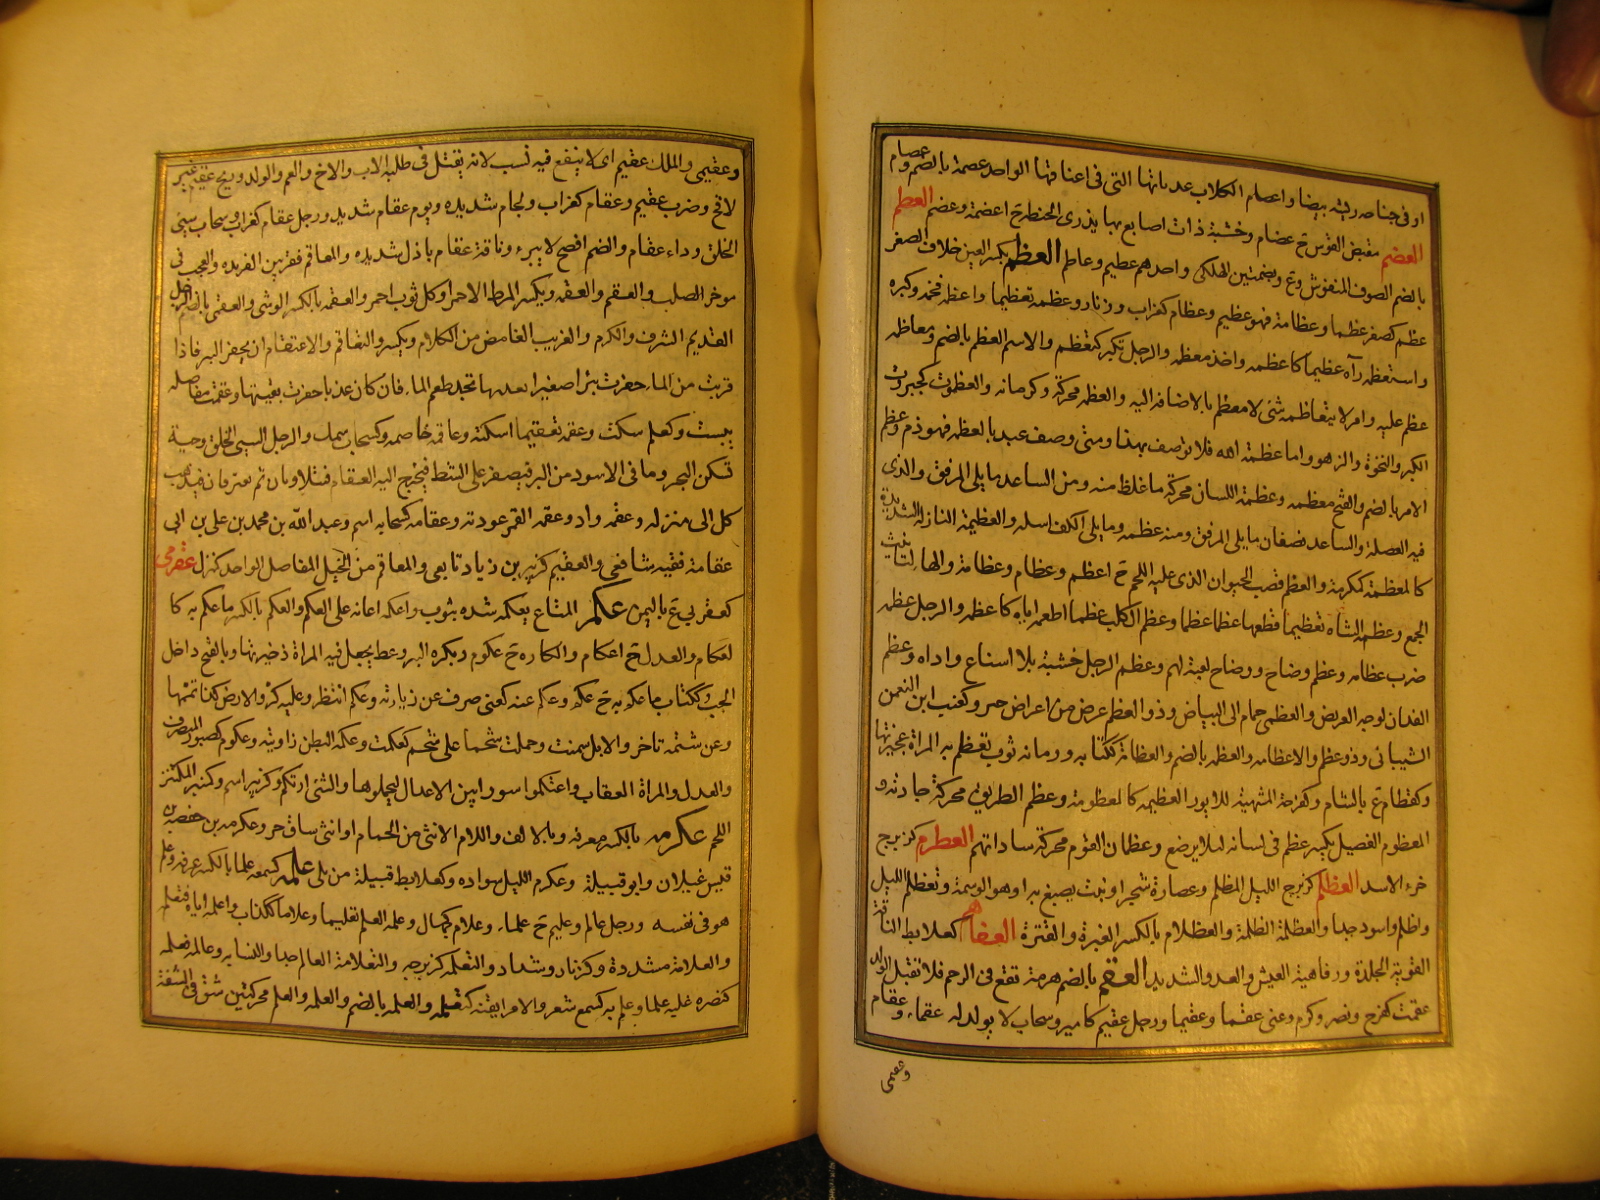 او فى جناحه ريشه بيضا واعصام الكلاب عذباتها التى فى اعناقها الواحد عصمة بالضم وعصام
العضم مقبض القوس ج عضام وخشبة ذات اصابع بها يذرى الحنطة ج اعضمة وعضم العظم
بالضم الصوف المنفوش وع وبضمتين الهلكى واحدهم عظيم وعاظم العظم بكسر العين خلاف الصغر
عظم كصغر عظما وعظامة فهو عظيم وعظام كغراب وزنار وعظمه تعظيما واعظمه فخمه وكبره
واستعظمه رآه عظيما كاعظمه واخذ معظمه والرجل تكبر كتعظم والاسم العظم بالضم ومعاظمه
عظم عليه وامر لا يتعاظمه شئ لا معظم بالاضافه اليه والعظمه محركة وكرمانه والعظموت كجبروت
الكبر والنخوة والزهو واما عظمة الله فلا توصف بهذا ومتى وصف عبد بالعظمه فهو ذم وعظم
الامر بالضم والفتح معظمه وعظمة اللسان محركة ما غلظ منه ومن الساعد ما يلى المرفق والذى
فيه العضلة والساعد نصفان ما يلى المرفق ومنه عظمه وما يلى الكف اسله والعظيمة النازلة الشديدة
كالمعظمة كمكرمة والعظم قصب الحيوان الذى عليه اللحم ج اعظم وعظام وعظامة والها لتانيث
الجمع وعظم الشاه تعظيما قطعها عظما عظما وعظم الكلب عظما اطعمه اياه كاعظمه والرجل عظمه
ضرب عظامه وعظم وضاح ووضاح لعبة لهم وعظم الرجل خشبة بلا انساع واداه وعظم
الفدان لوحه العريض والعظمى حمام الى البياض وذو العظم عرض من اعراض خيبر وكعنب ابن النعمن
الشيبانى وذو عظم والاعظامه والعظمه بالضم والعظامة ككتابه ورمانه ثوب تعظم به المراة عجيزتها
وكقطام ع بالشام وكفرحة المشهية للايور العظيمه كالمعظومة وعظم الطريق محركة جادته و
المعظوم الفصيل يكسر عظم فى لسانه لئلا يرضع وعظمات القوم محركة ساداتهم العطرم كزبرج
خرء الاسد العظلم كزبرج الليل المظلم وعصارة شجر او نبت يصبغ به او هو الوسمة وتعظلم الليل
واظلم واسود جدا والعظلمة الظلمة والعظلام بالكسر الغبرة والقترة العفاهم كعلابط الناقة
القوية الجلدة ورفاهية العيش والعدو الشديد العقم بالضم هزمة تقع فى الرحم فلا تقبل الولد
عقمت كفرح ونصر وكرم وعنى عقما وعقيما ورجل عقيم كامير وسحاب لا يولد له عقماء وعقام
وعقمى
وعقيمى والملك عقيم اى لا ينفع فيه نسب لانه يقتل فى طلبه الاب والاخ والعم والولد وريح عقيم غير
لاقح وحرب عقيم وعقام كغراب ولجام شديده ويوم عقام شديد ورجل عقام كغراب وسحاب سيئ
الخلق وداء عقام والضم افصح لا يبرء وناقة عقام باذل شديده والمعاقم فقر بين الفريده والعجب فى
موخر الصلب والعقم والعقمه ويكسر المرط الاحمر او كل ثوب احمر والعقمه بالكسر الوشى والعقمى بالضم الرجل
القديم الشرف والكرم والغريب الغامض من الكلام ويكسر والتعاقم والاعتقام ان يحفر البير فاذا
قربت من الما حفرت بئرا صغيرا بعدها تجد طعم الما فان كان عذبا حفرت بقيتها وعقمت مفاصله
يبست وكعلم سكت وعقمه تعقيما اسكته وعاقمه خاصمه وكسحاب سمك والرجل السيئ الخلق وحية
تسكن البحر وما فى الاسود من البر فيصفر على الشط فيخرج اليه العقام فيتلاويان ثم يفترقان فيذهب
كل الى منزله وعقمه واد وعقمه القمر عودته وعقامه كسحابه اسم وعبد الله بن محمد بن على بن ابى
عقامة فقيه شافعى والعقيم كزبير بن زياد تابعى والمعاقم من الخيل المفاصل الواحد كمنزل عقرمى
كعقربى ع باليمن عكم المتاع يعكمه شده بثوب واعكمه اعانه على العكم والعكم بالكسر ما عكم به كا
لعكام والعدل ج اعكام والكاره ج عكوم وبكره البير ونمط يجعل فيه المراة ذخيرتها وبالفتح داخل
الجب وككتاب ما عكم به ج عكم وعكم عنه كعنى صرف عن زيارته وعكم انتظر وعليه كر والارض كذا تمتها
وعن شتمه تاخر والابل سمنت وحملت شحما على شحم كعكمت وعكمة البطن زاويته وعكوم كصبور المنصرف
والعدل والمراة المعقاب واعتكموا سووا بين الاعدال ليحملوها والشئ ارتكم وكزبير اسم وكمنبر المكتنز
اللحم عكرمه بالكسر معرفة وبالالف واللام الانثى من الحمام او انثى ساق حر وعكرمه بن خصفه بن
قيس غيلان وابو قبيلة وعكرم الليل سواده وكعلابط قبيلة من بلى علمه كسمعه علما بالكسر عرفه وعلم
هو فى نفسه ورجل عالم وعليم ج علماء وعلام كجهال وعلمه العلم تعليما وعلاما ككذاب واعلمه اياه فتعلمه
والعلامة مشددة وكزنار وشداد والتعلمه كزبرجه والتعلامة العالم جدا والنسابه وعالمه فعلمه
كنصره غلبه علما وعلم به كسمع شعر والامر اتقنه كتعلمه والعلمه بالضم والعلمه والعلم محركتين شق فى الشفة